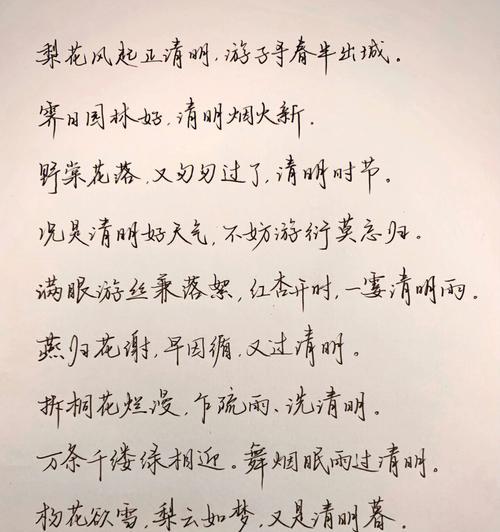 梨花风起正清明，游子寻春半出城。
霁日园林好，清明烟火新。
野棠花落，又匆匆过了，清明时节。
况是清明好天气，不妨游衍莫忘归。
满眼游丝兼落絮，红杏开时，一霎清明雨。
燕归花谢，早因循，又过清明。
拆桐花烂漫，乍疏雨、洗清明。
万条千缕绿相迎。舞烟眠雨过清明。
杨花欲雪，梨云如梦，又是清明暮。